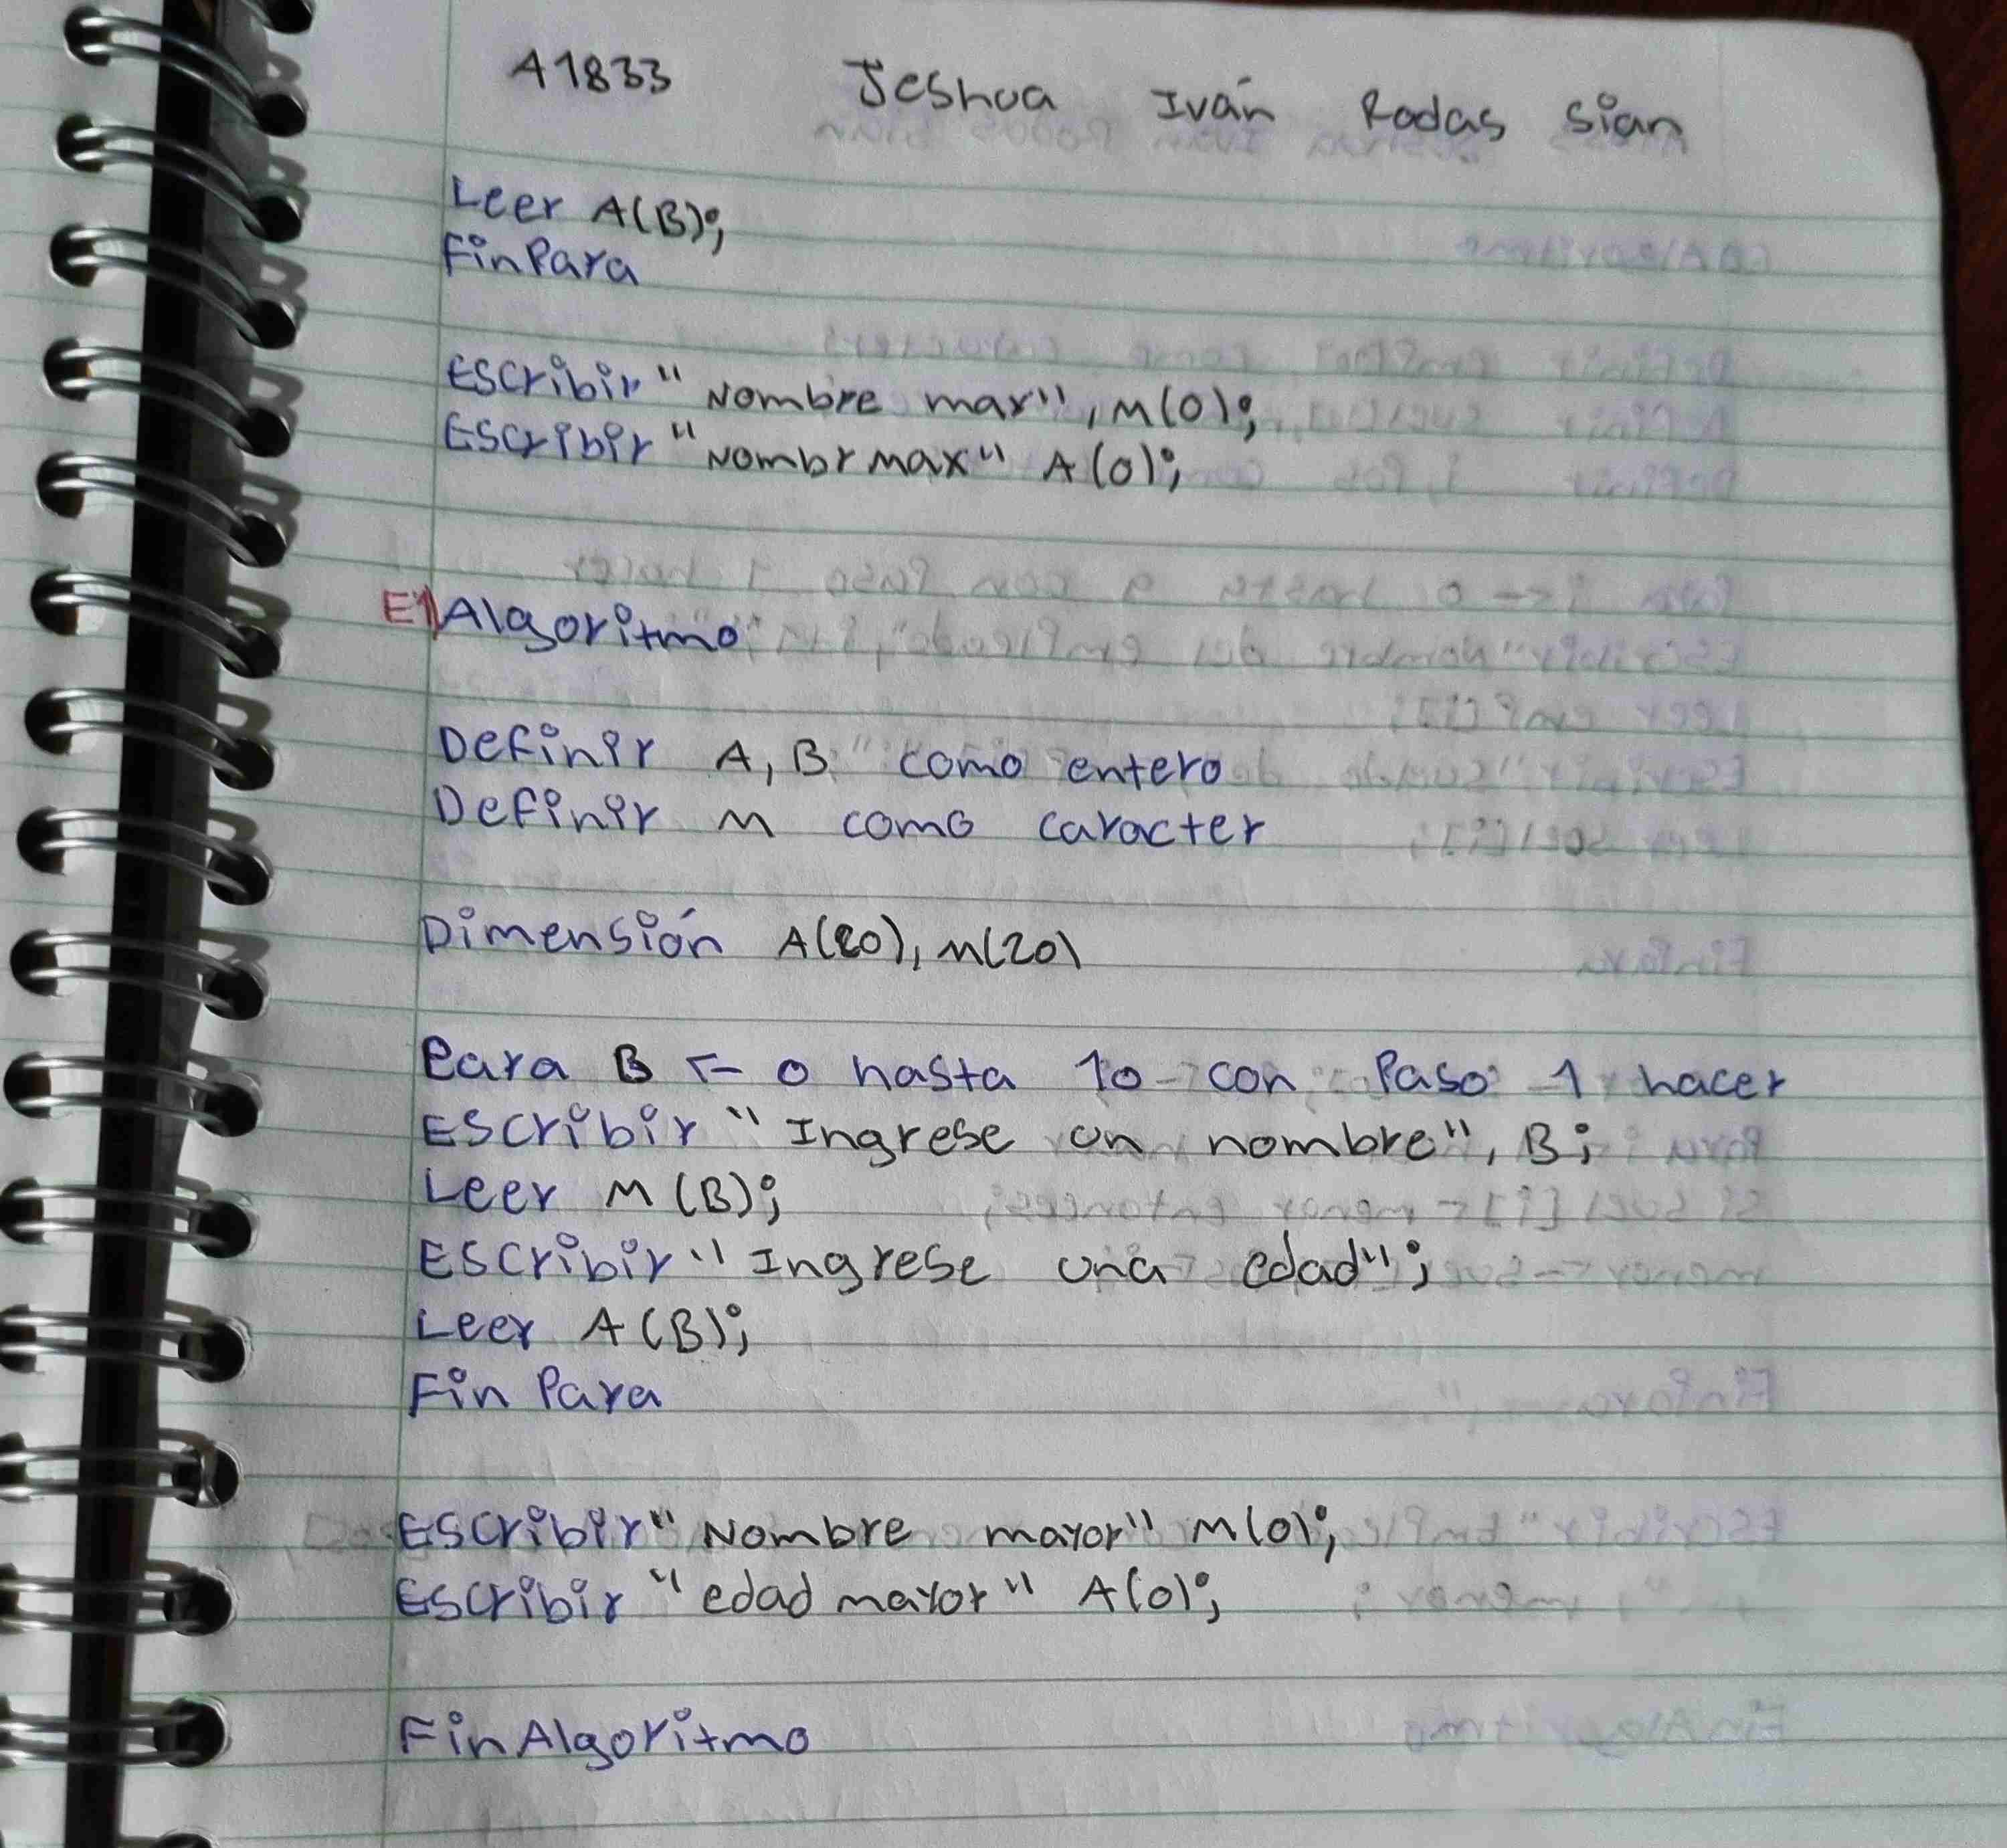 A1833 Jeshua Iván Rodas Sian
Leer A(B);
FinPara
Escribir "Nombre max", M(0);
Escribir "Nombrmax" A(0);
E1) Algoritmo
Definir A, B como entero
Definir M como caracter
Dimensión A(20), M(20)
Para B <- 0 hasta 10 con Paso 1 hacer
Escribir "Ingrese un nombre", B;
Leer M (B);
Escribir "Ingrese una edad";
Leer A (B);
Fin Para
Escribir "Nombre mayor" M(0);
Escribir "edad mayor" A(0);
FinAlgoritmo